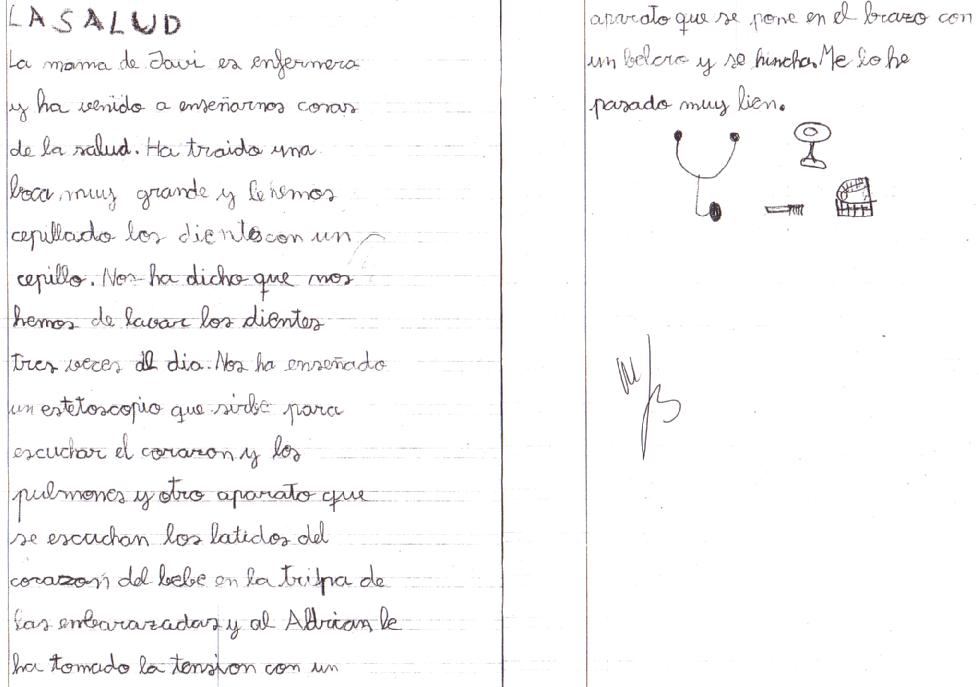 LA SALUD
La mama de Javi es enfermera
y ha venido a enseñarnos cosas
de la salud. Ha traido una
boca muy grande y le hemos
cepillado los dientes con un
cepillo. Nos ha dicho que nos
hemos de lavar los dientes
tres veces al dia. Nos ha enseñado
un estetoscopio que sirbe para
escuchar el corazon y los
pulmones y otro aparato que
se escuchan los latidos del
corazon del bebe en la tripa de
las embarazadas y al Adrian le
ha tomado la tension con un
aparato que se pone en el brazo con
un belcro y se hincha. Me lo he
pasado muy bien.